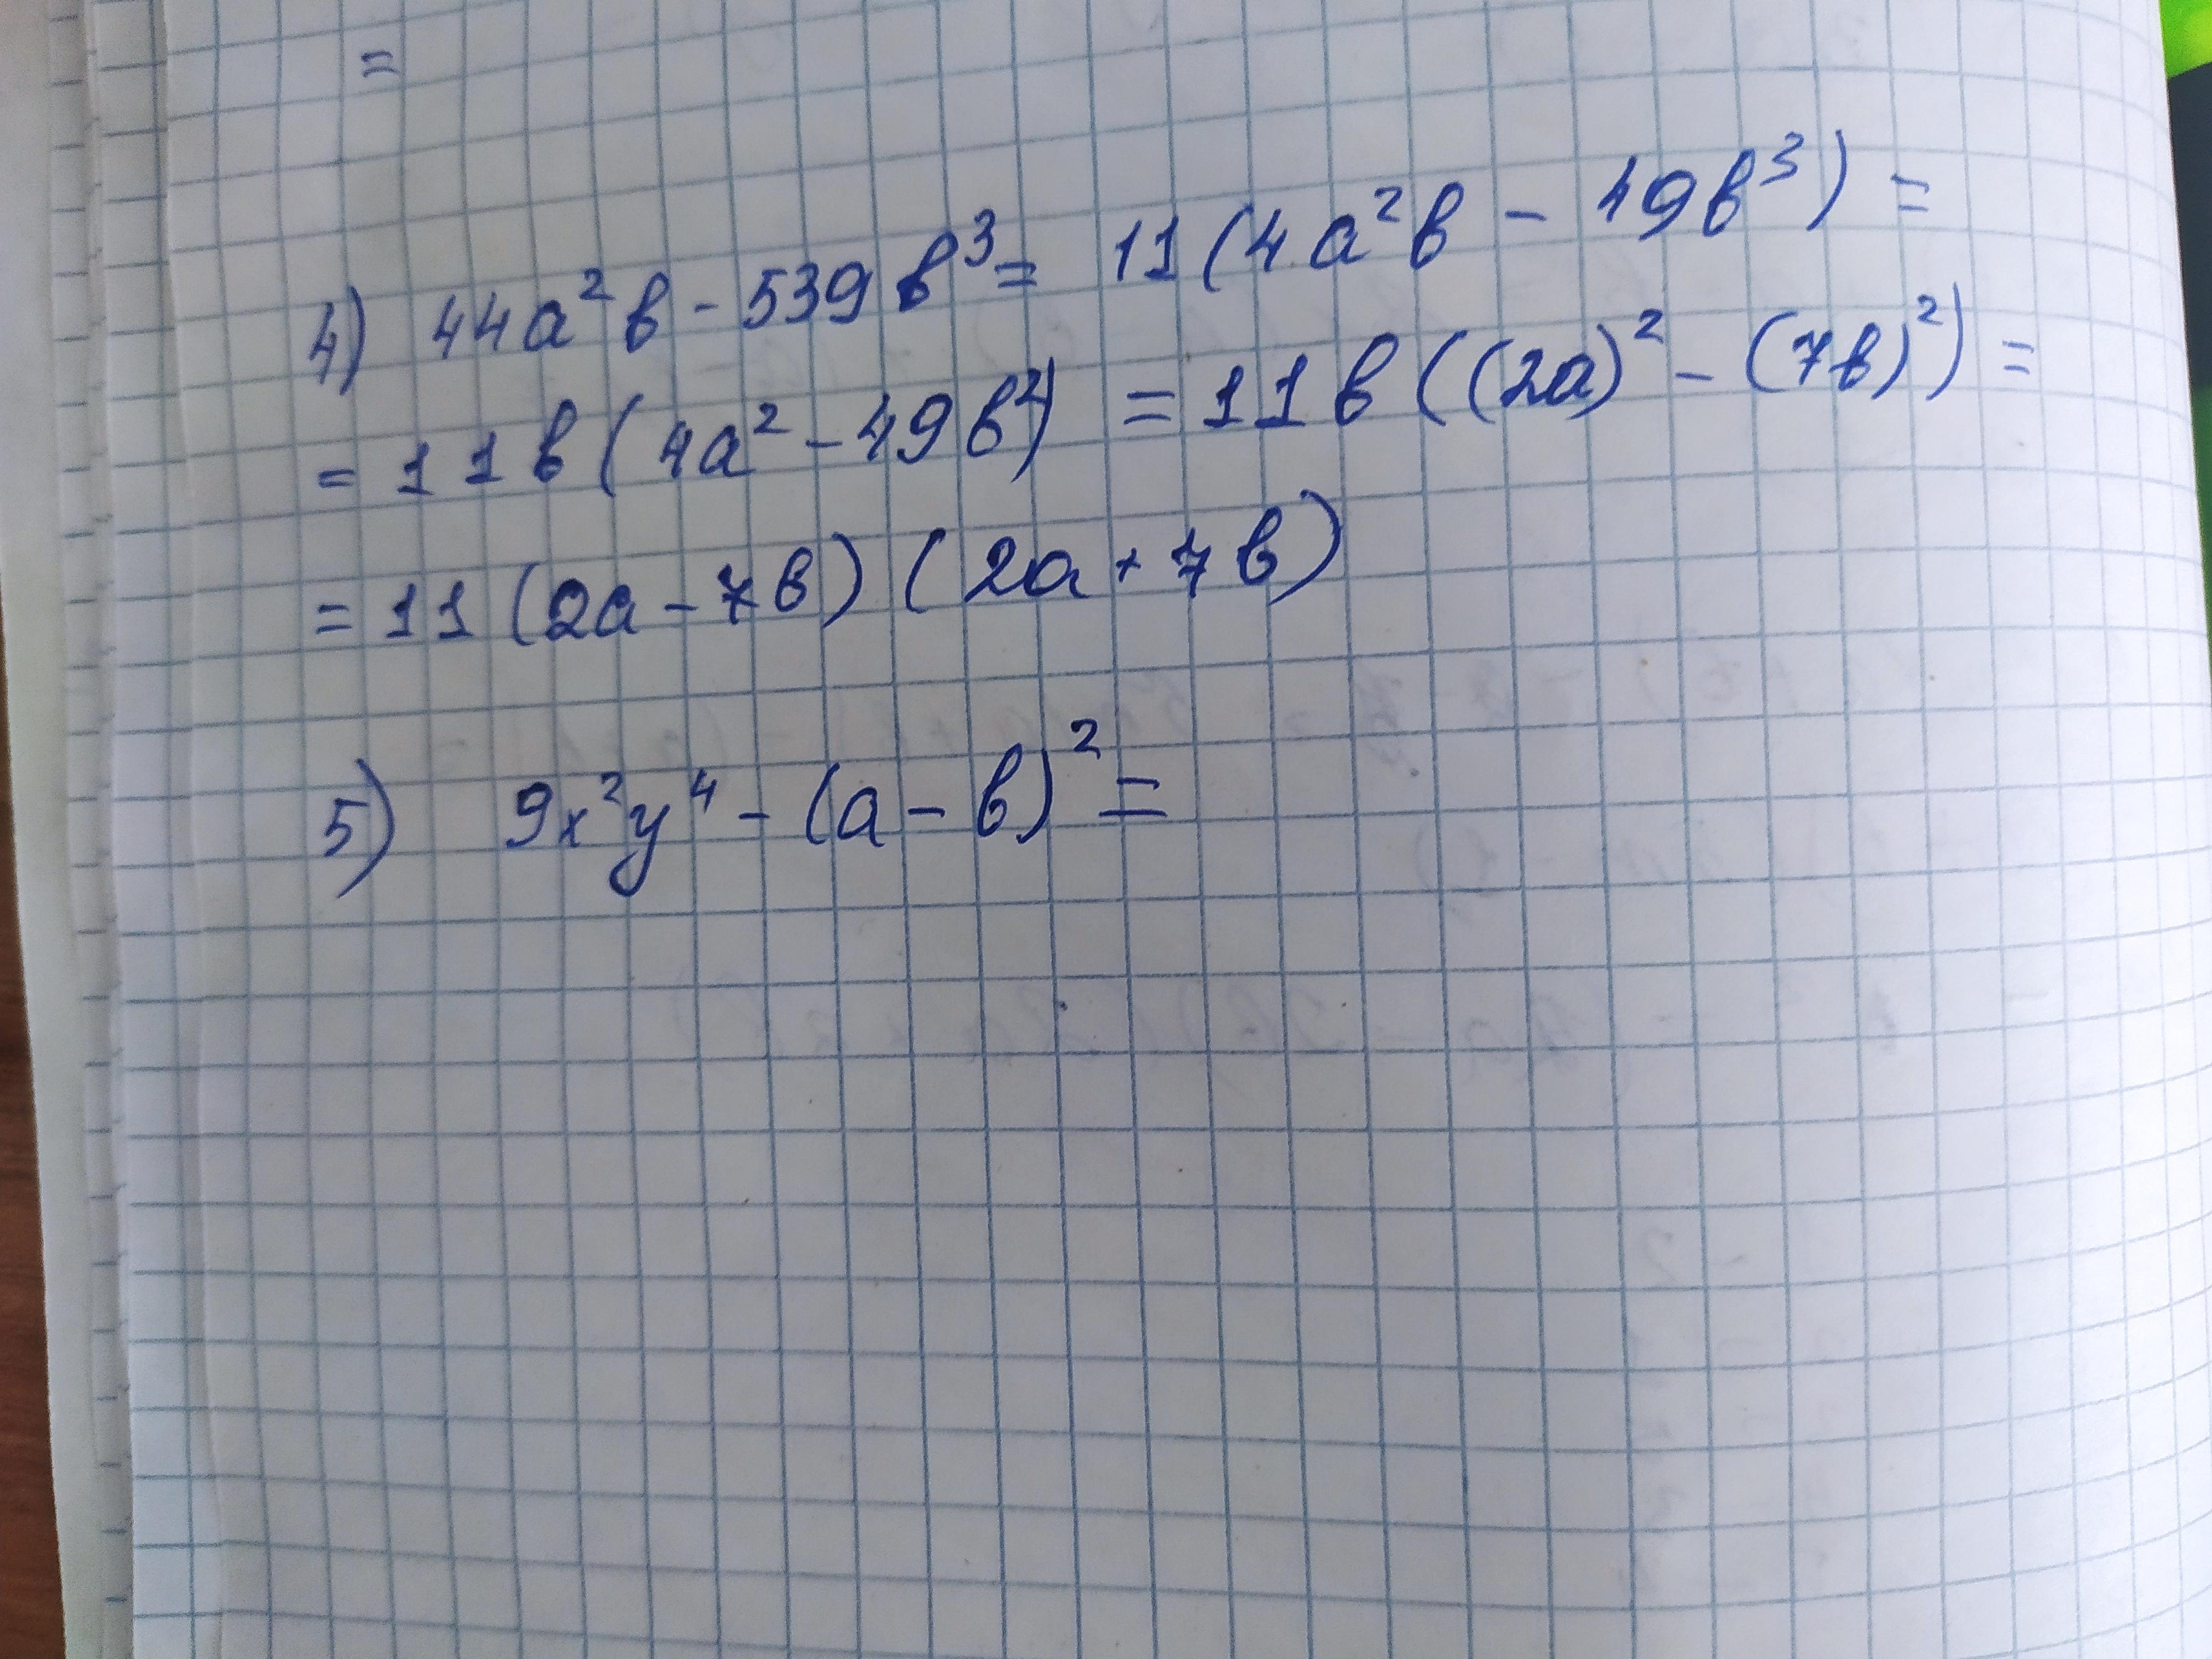 =
4) 44a²b - 539b³ = 11(4a²b - 49b³) =
= 11b(4a² - 49b²) = 11b((2a)² - (7b)²) =
= 11(2a - 7b)(2a + 7b)
5) 9x²y⁴ - (a - b)² =